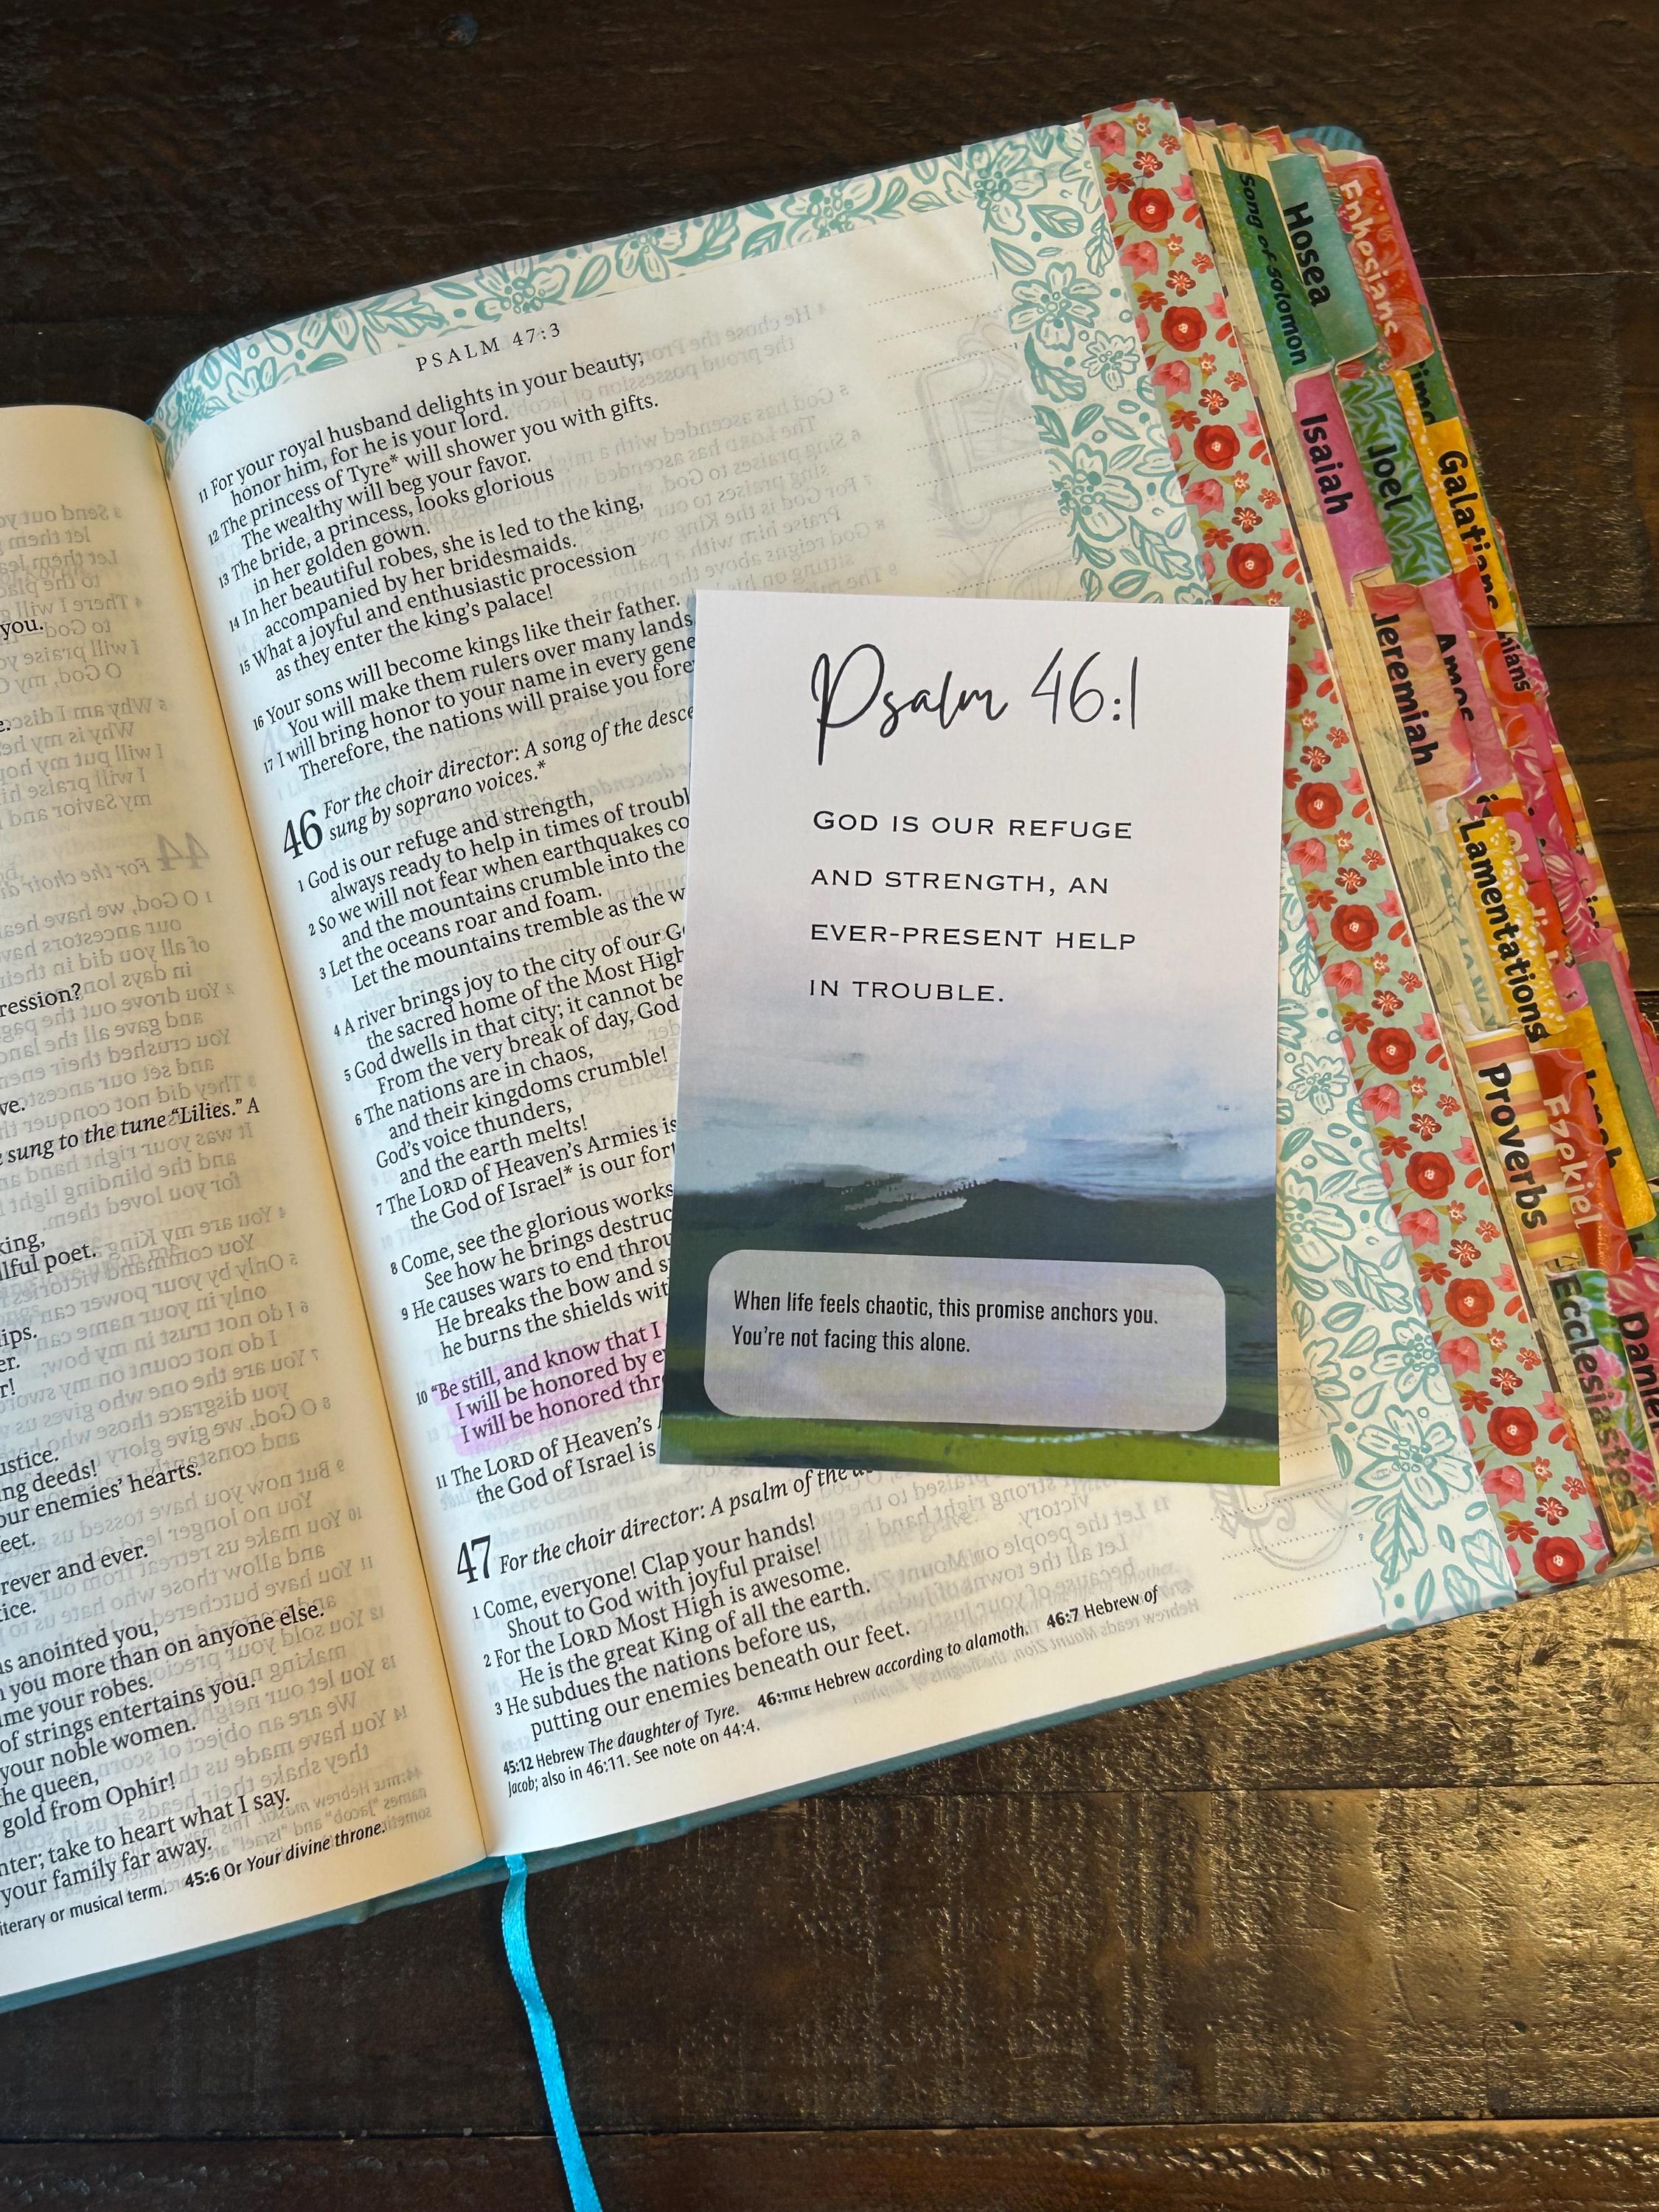 you.
ression?
sung to the tune “Lilies.” A
king,
llful poet.
lips.
ustice.
ng deeds!
our enemies’ hearts.
feet.
rever and ever.
tice.
anointed you,
you more than on anyone else.
me your robes.
of strings entertains you.
your noble women.
the queen,
gold from Ophir!
take to heart what I say.
your family far away.
iterary or musical term. 45:6 Or Your divine throne.
PSALM 47:3
11 For your royal husband delights in your beauty;
honor him, for he is your lord.
12 The princess of Tyre* will shower you with gifts.
The wealthy will beg your favor.
13 The bride, a princess, looks glorious
in her golden gown.
14 In her beautiful robes, she is led to the king,
accompanied by her bridesmaids.
15 What a joyful and enthusiastic procession
as they enter the king’s palace!
16 Your sons will become kings like their father.
You will make them rulers over many lands
17 I will bring honor to your name in every gene
Therefore, the nations will praise you fore
46 For the choir director: A song of the desce
sung by soprano voices.*
1 God is our refuge and strength,
always ready to help in times of troubl
2 So we will not fear when earthquakes co
and the mountains crumble into the
3 Let the oceans roar and foam.
Let the mountains tremble as the w
4 A river brings joy to the city of our G
the sacred home of the Most High
5 God dwells in that city; it cannot be
From the very break of day, God
6 The nations are in chaos,
and their kingdoms crumble!
God’s voice thunders,
and the earth melts!
7 The LORD of Heaven’s Armies is
the God of Israel* is our fort
8 Come, see the glorious works
See how he brings destruc
9 He causes wars to end throu
He breaks the bow and s
he burns the shields wit
10 “Be still, and know that I
I will be honored by e
I will be honored thr
11 The LORD of Heaven’s
the God of Israel is
47 For the choir director: A psalm of the
1 Come, everyone! Clap your hands!
Shout to God with joyful praise!
2 For the LORD Most High is awesome.
He is the great King of all the earth.
3 He subdues the nations before us,
putting our enemies beneath our feet.
45:12 Hebrew The daughter of Tyre. 46:TITLE Hebrew according to alamoth. 46:7 Hebrew of
Jacob; also in 46:11. See note on 44:4.
Psalm 46:1
GOD IS OUR REFUGE
AND STRENGTH, AN
EVER-PRESENT HELP
IN TROUBLE.
When life feels chaotic, this promise anchors you.
You’re not facing this alone.
Song of Solomon
Hosea
Ephesians
Isaiah
Joel
Galatians
Jeremiah
Amos
Lamentations
Proverbs
Ezekiel
Jonah
Ecclesiastes
Daniel